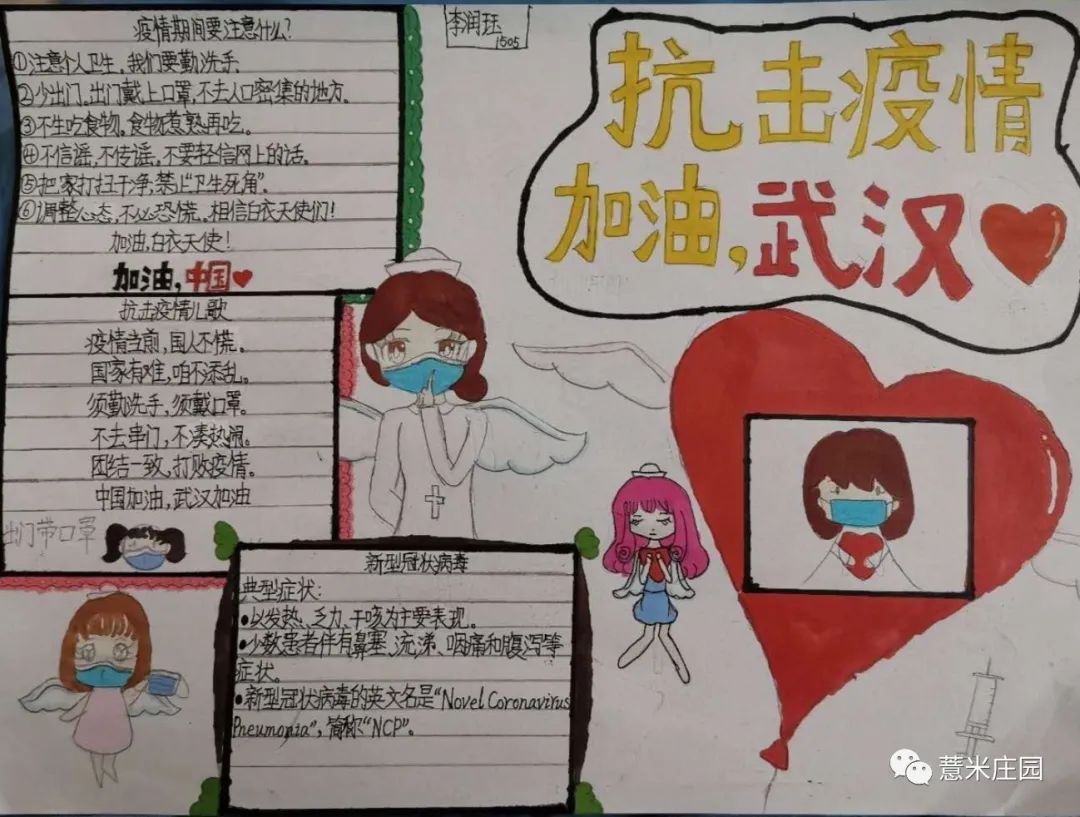 疫情期间要注意什么?
①注意个人卫生,我们要勤洗手
②少出门,出门戴上口罩,不去人口密集的地方。
③不生吃食物。食物煮熟再吃。
④不信谣,不传谣,不要轻信网上的话。
⑤把家打扫干净,禁止"卫生死角"。
⑥调整心态,不必恐慌。相信白衣天使们!
加油,白衣天使!
加油,中国
李润珏
1505
抗击疫情
加油,武汉
抗击疫情儿歌
疫情当前,国人不慌。
国家有难,咱不添乱。
须勤洗手,须戴口罩。
不去串门,不凑热闹。
团结一致,打败疫情。
中国加油,武汉加油
出门带口罩
新型冠状病毒
典型症状:
•以发热、乏力、干咳为主要表现。
•少数患者伴有鼻塞、流涕、咽痛和腹泻等
症状。
•新型冠状病毒的英文名是"Novel Coronavirus
Pneumonia",简称"NCP"。
薏米庄园